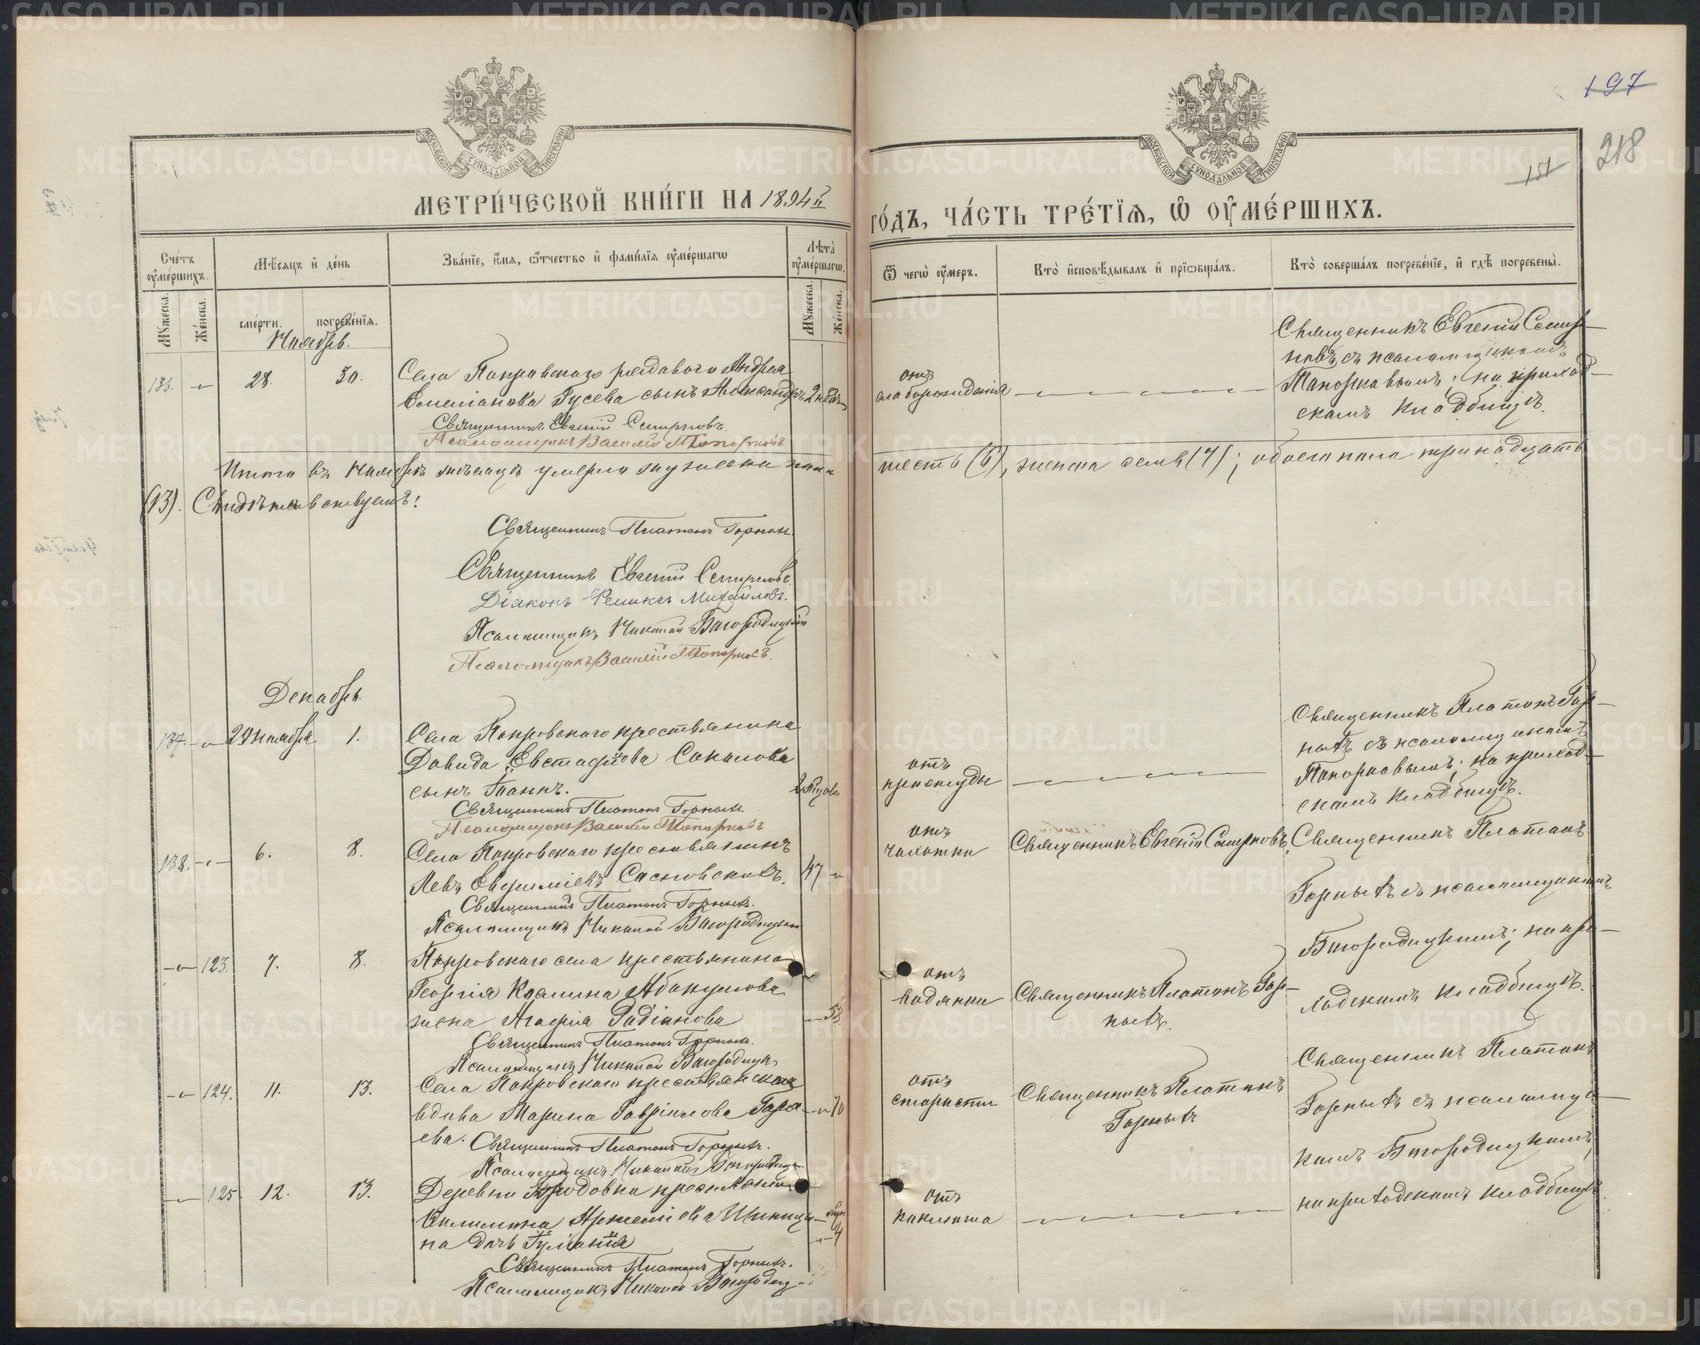 METRIKI.GASO-URAL.RU
197
218
151
МЕТРИ́ЧЕСКОЙ КНИ́ГИ НА 1894й
ГО́ДЪ, ЧА́СТЬ ТРЕ́ТІѦ, Ѡ҆ ОУ҆МЕ́РШИХЪ.
Сче́тъ оу҆ме́ршихъ.
Мѣ́сяцъ и҆ де́нь
Зва́нїе, и҆́мя, ѻ҆́тчество и҆ фами́лїя оу҆ме́ршагѡ
Лѣ́та оу҆ме́ршагѡ.
Ѿ чегѡ̀ оу҆́меръ.
Кто̀ и҆сповѣ́дывалъ и҆ прїѡбща́лъ.
Кто̀ соверша́лъ погребе́нїе, и҆ гдѣ̀ погребены̀.
Мꙋ́жеска.
Же́нска.
сме́рти.
погребе́нїя.
Мꙋ́жеска.
Же́нска.
Ноябрь.
136. 28. 30.
Села Покровскаго рядового Андрея
Емелianова Гусева сынъ Александръ
Священникъ Евгеній Смирновъ
Псаломщикъ Василій Топорковъ
отъ
слаборожденія
Священникъ Евгеній Смир-
новъ съ псаломщикомъ
Топорковымъ; на приход-
скомъ кладбищѣ.
Итого въ Ноябрѣ мѣсяцѣ умерло мужеска пола
шесть (6), женска семь (7); обоего пола тринадцать
(13). Свидѣтельствуемъ!
Священникъ Платонъ Горныхъ
Священникъ Евгеній Смирновъ
Діаконъ Феликсъ Михайловъ.
Псаломщикъ Николай Богородицкій
Псаломщикъ Василій Топорковъ.
Декабрь.
137. 29 ноября 1.
Села Покровскаго крестьянина
Давида Евстафіева Соколова
сынъ Іоаннъ.
Священникъ Платонъ Горныхъ.
Псаломщикъ Василій Топорковъ
отъ
простуды
Священникъ Платонъ Гор-
ныхъ съ псаломщикомъ
Топорковымъ; на приход-
скомъ кладбищѣ.
138. 6. 8.
Села Покровскаго крестьянинъ
Левъ Евфиміевъ Сосновскихъ.
47
Священникъ Платонъ Горныхъ.
Псаломщикъ Николай Богородицкій
отъ
чахотки
Священникъ Евгеній Смирновъ.
Священникъ Платонъ
Горныхъ съ псаломщикомъ
Богородицкимъ; на при-
ходскомъ кладбищѣ.
123. 7. 8.
Покровскаго села крестьянина
Георгія Козмина Абакумова
жена Агафія Родіонова
53.
Священникъ Платонъ Горныхъ.
Псаломщикъ Николай Богородицк.
отъ
водянки
Священникъ Платонъ Гор-
ныхъ.
124. 11. 13.
Села Покровскаго крестьянская
вдова Марина Гавріилова
70
Священникъ Платонъ Горныхъ.
Псаломщикъ Николай Богородицк
отъ
старости
Священникъ Платонъ
Горныхъ
Священникъ Платонъ
Горныхъ съ псаломщи-
комъ Богородицкимъ;
на приходскомъ кладбищѣ.
125 12. 13.
на дочь Іуліанія
Священникъ Платонъ Горныхъ.
Псаломщикъ Николай Богородиц
отъ
коклюша